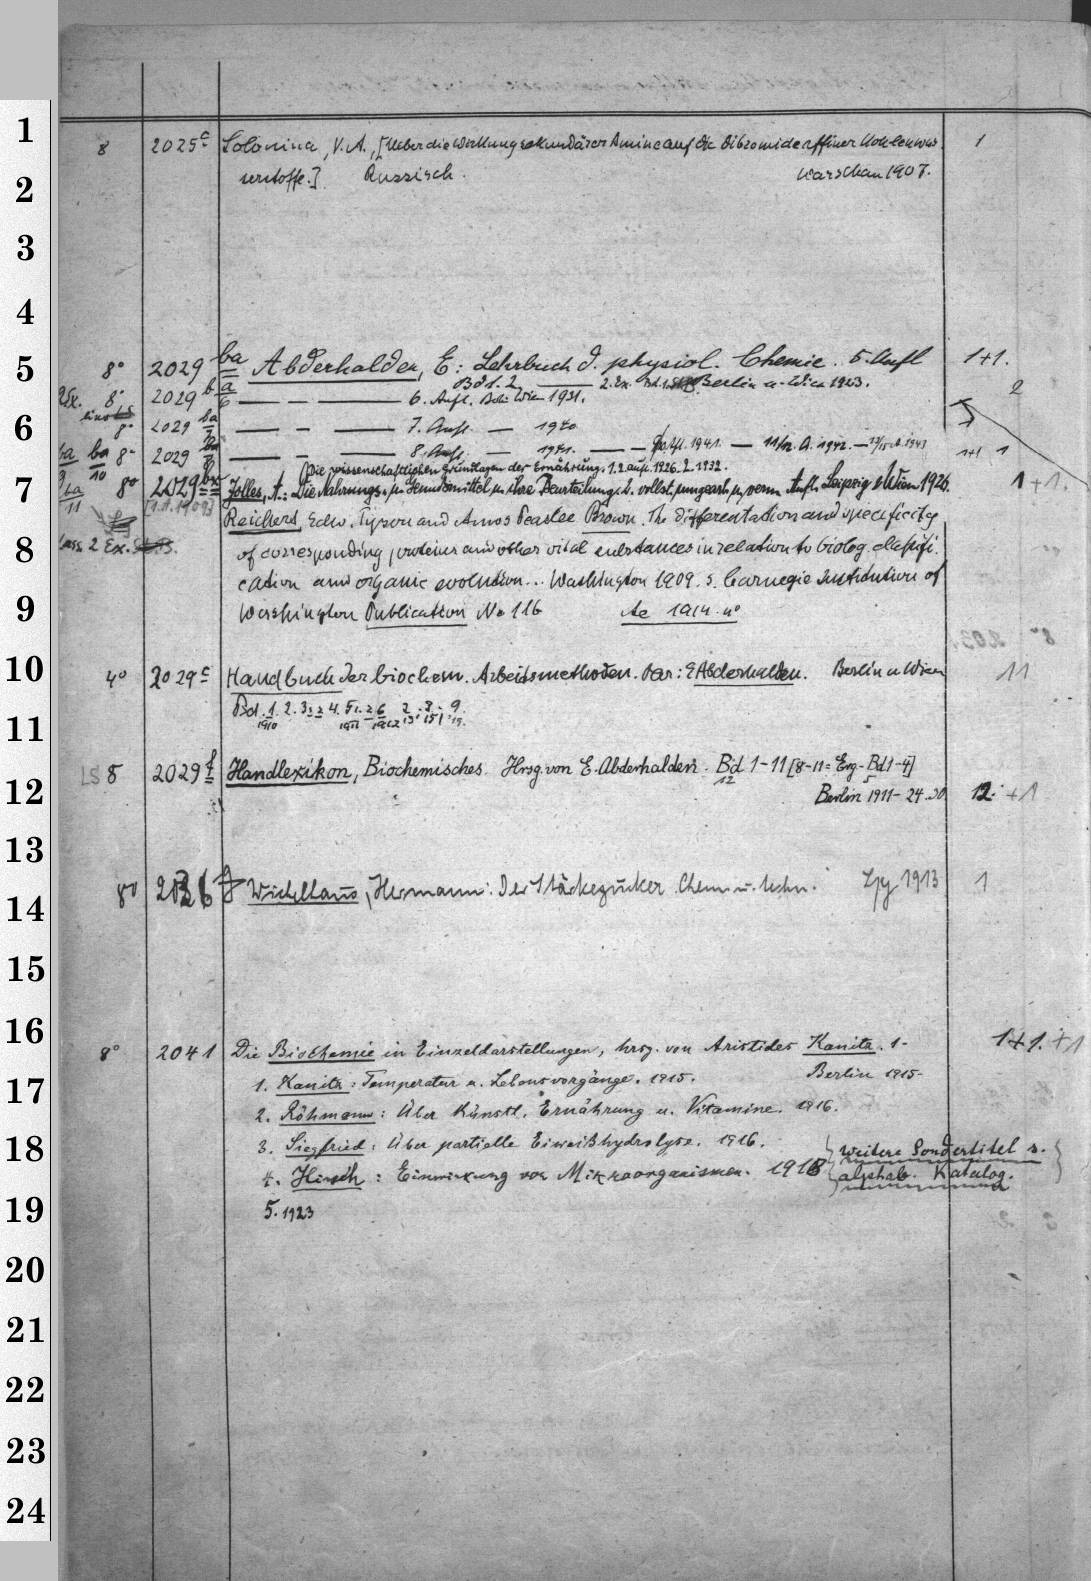 1
8 2025c Solonina, V. A., [Ueber die Wirkung sekundärer Amine auf die Dibromide offiner Kohlenwas 1
2
serstoffe.] Russisch. Warschau 1907.
3
4
5
8° 2029 ba Abderhalden, E: Lehrbuch d. physiol. Chemie. 5. Aufl 1+1.
Bd 1. 2 2. Ex. Berlin u. Wien 1923.
8° 2029 — – — 6. Aufl. Wien 1931. 2
6
8° 2029 ba — – — 7. Aufl. — 1940
ba 8° 2029 ba — – — 8. Aufl. — 1941. — 1941. — 11/12. A. 1942. — 1943 1+1 1
10
Die wissenschaftlichen Grundlagen der Ernährung. 1.2. Aufl. 1926. 2. 1932.
7
ba 11 8° 2029 Jolles, A.: Die Nahrungs- u. Genußmittel u. ihre Beurteilung. 2. vollst. umgearb. u. verm. Aufl. Leipzig u Wien 1926. 1+1.
Reichert, Edw. Tyson and Amos Peaslee Brown. The differentation and specificity
8
2 Ex. of corresponding proteins and other vital substances in relation to biolog. classifi.
cation and organic evolution... Washington 1909. s. Carnegie Institution of
9
Washington Publication No 116 Ac 1914. n°
10
4° 2029 c Handbuch der biochem. Arbeitsmethoden. E Abderhalden. Berlin u Wien 11
11
Bd. 1. 2. 3 4. 5 6 8 9
1910
LS 8 2029 f Handlexikon, Biochemisches. Hrsg. von E. Abderhalden. Bd 1-11 [8-11 = Erg-Bd 1-4]
12
12 5
Berlin 1911-24.30 12. +1
13
8° 2036 f Wichelhaus, Hermann: Der Stärkezucker. Chem. u. techn. Lpg 1913 1
14
15
16
8° 2041 Die Biochemie in Einzeldarstellungen, hrsg. von Aristides Kanitz. 1- 1+1. +1
17
1. Kanitz: Temperatur u. Lebensvorgänge. 1915. Berlin 1915-
2. Röhmann: Über künstl. Ernährung u. Vitamine. 1916.
18
3. Siegfried: Über partielle Eiweißhydrolyse. 1916. weitere Sondertitel s.
4. Hirsch: Einwirkung von Mikroorganismen. 1918 alphab. Katalog.
19
5. 1923
20
21
22
23
24